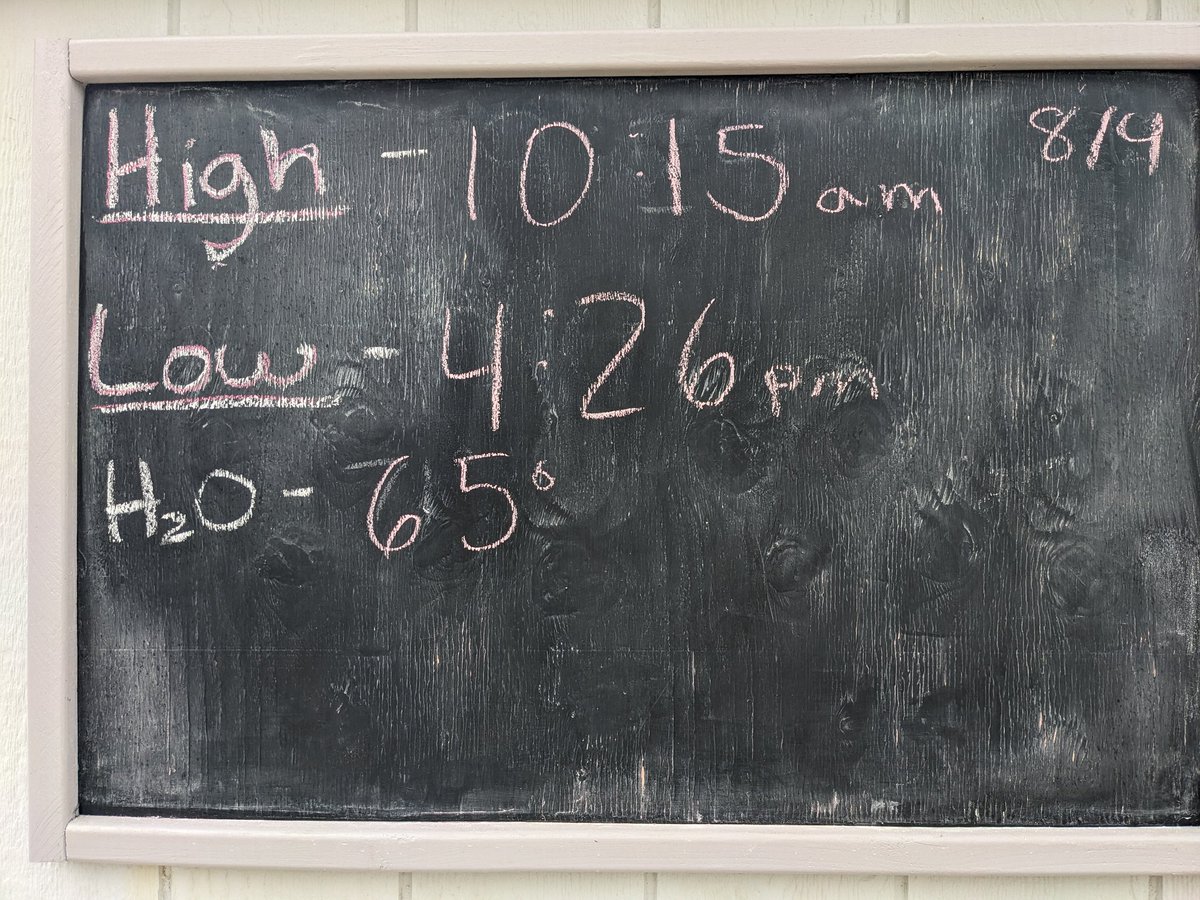 High - 10:15 am 8/9
Low - 4:26 pm
H₂O - 65°